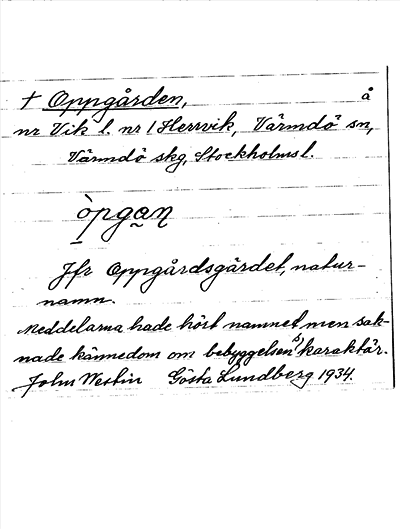 † Oppgården, å
nr Vik l. nr 1 Herrvik, Värmdö sn,
Värmdö skg, Stockholms l.
òpgan
Jfr Oppgårdsgärdet, natur-
namn.
Meddelarna hade hört namnet, men sak-
nade kännedom om bebyggelsens karaktär.
John Westin Gösta Lundberg 1934.